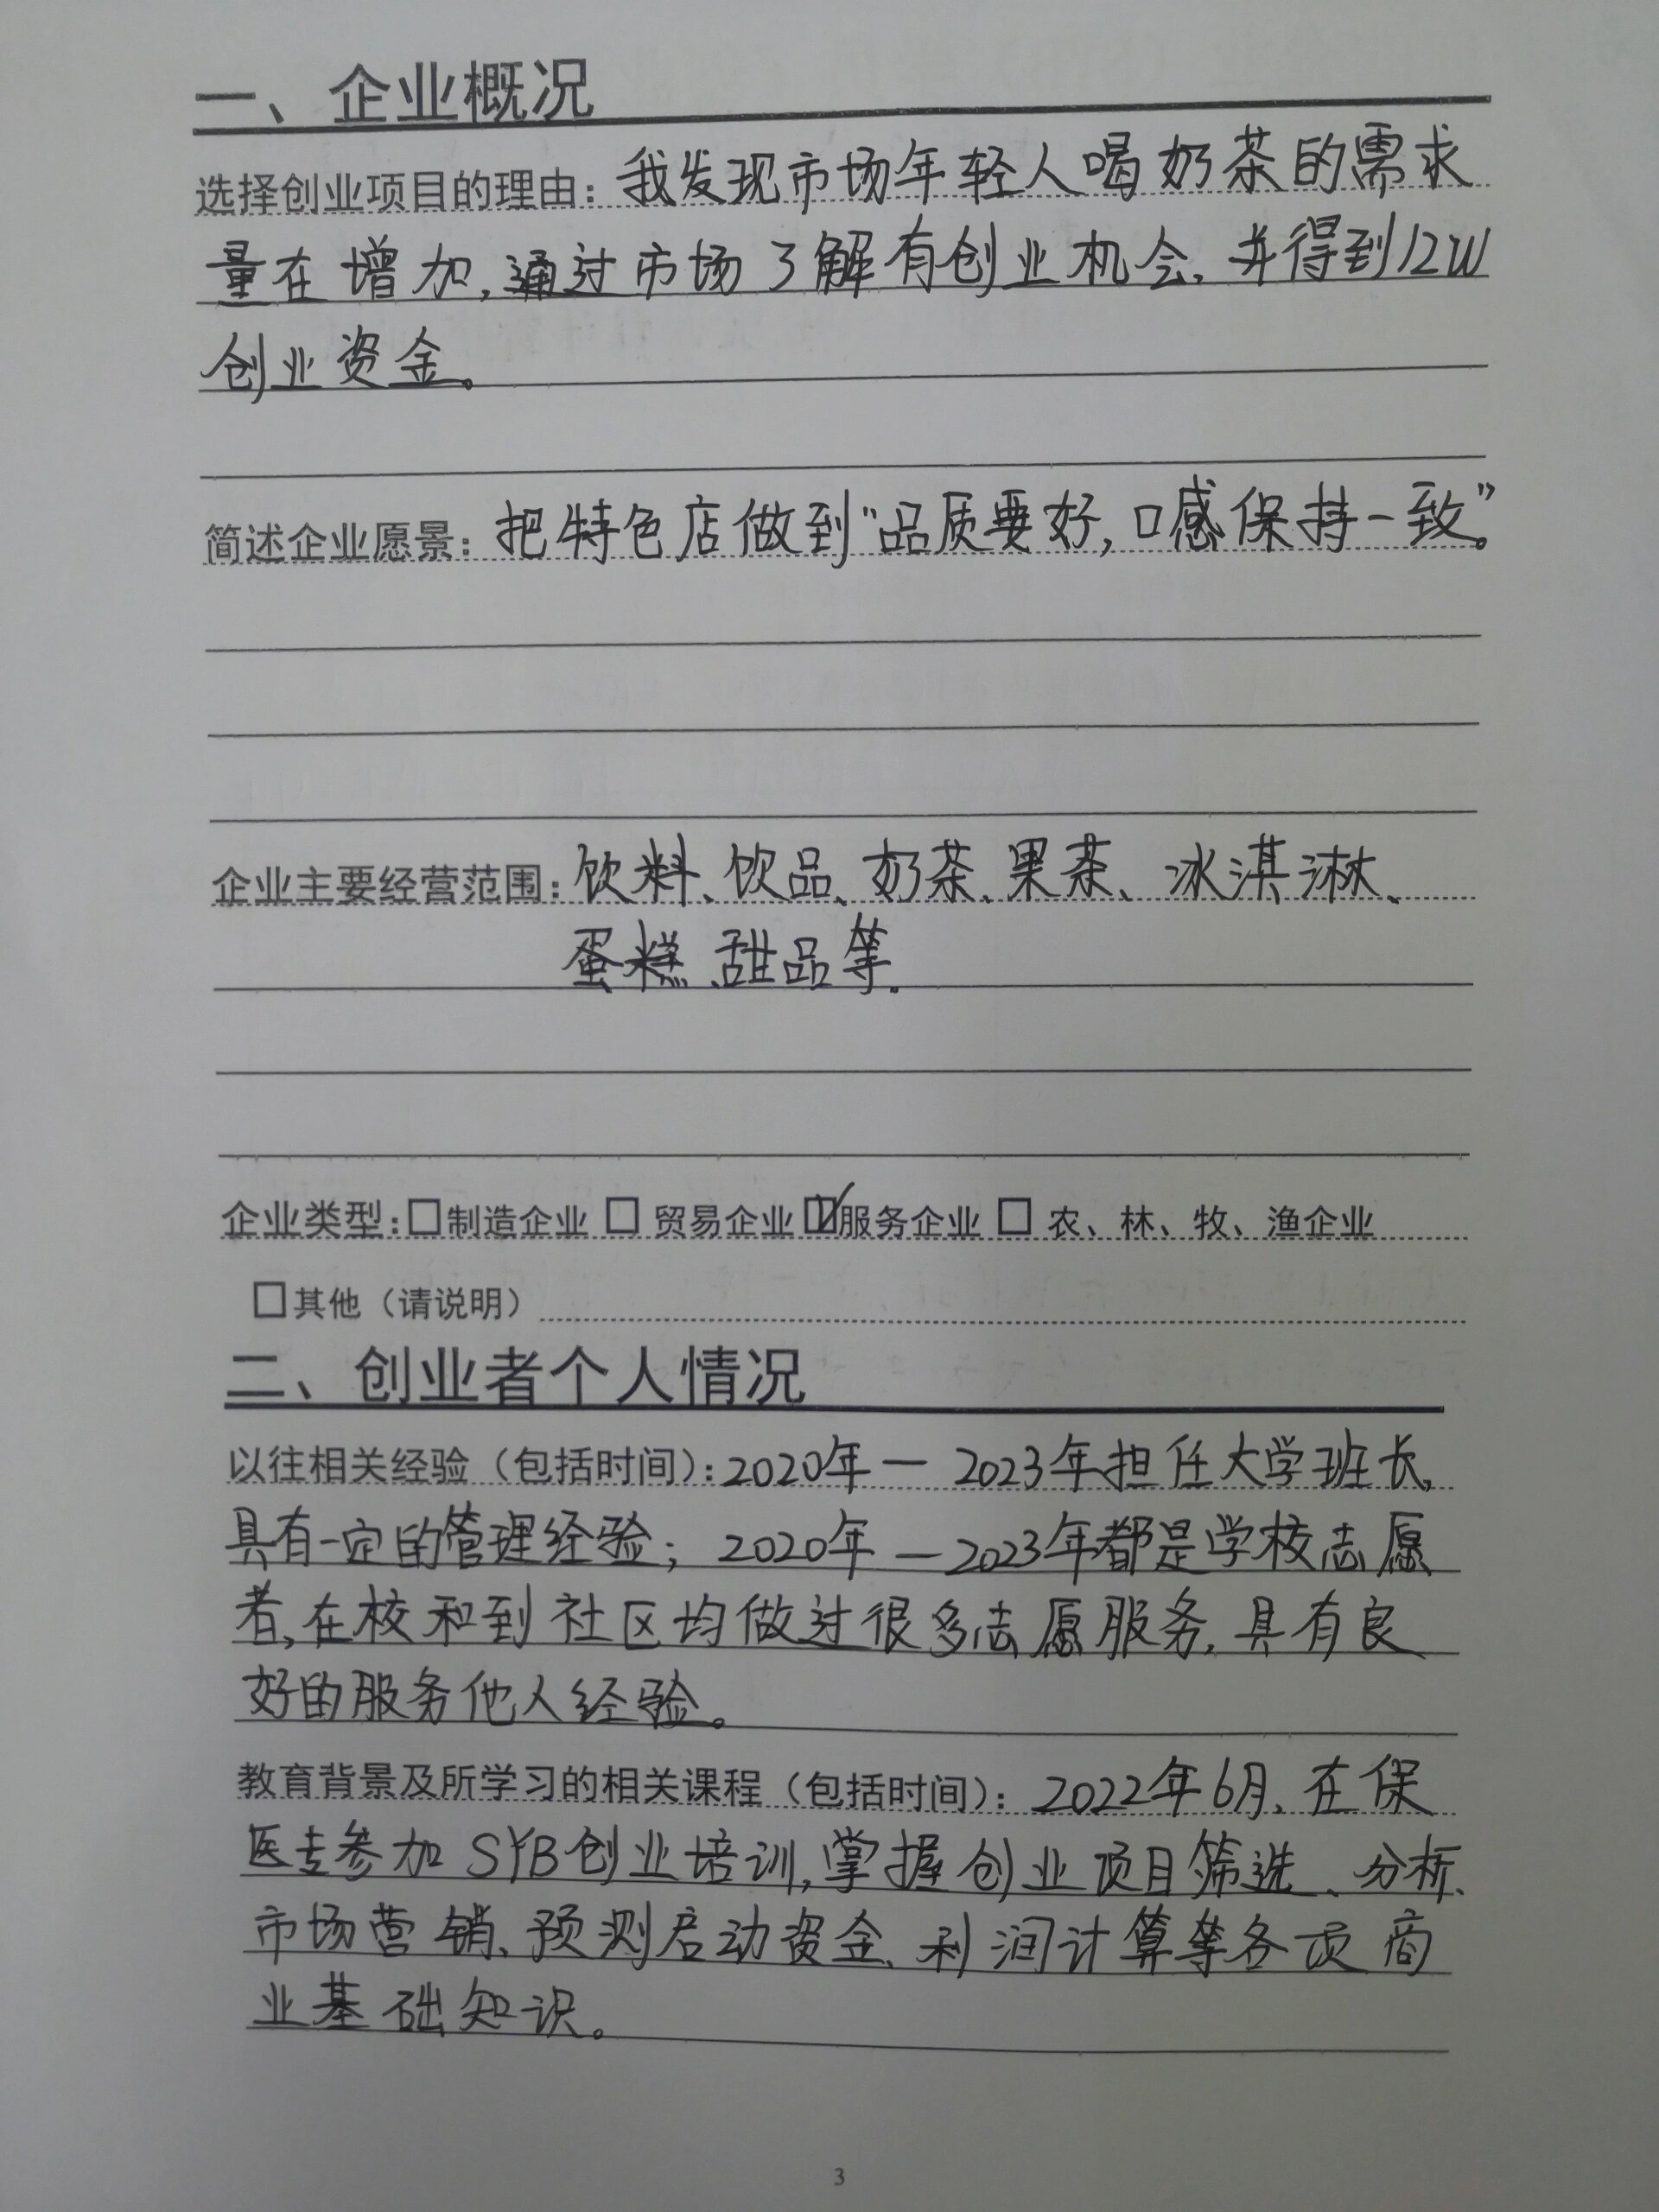 一、企业概况
选择创业项目的理由：我发现市场年轻人喝奶茶的需求
量在增加,通过市场了解有创业机会,并得到12W
创业资金。
简述企业愿景：把特色店做到"品质要好,口感保持一致"。
企业主要经营范围：饮料、饮品、奶茶、果茶、冰淇淋、
蛋糕、甜品等.
企业类型：☐制造企业 ☐ 贸易企业 ☑服务企业 ☐ 农、林、牧、渔企业
☐其他（请说明）
二、创业者个人情况
以往相关经验（包括时间）：2020年—2023年担任大学班长,
具有一定的管理经验；2020年—2023年都是学校志愿
者,在校和到社区均做过很多志愿服务,具有良
好的服务他人经验。
教育背景及所学习的相关课程（包括时间）：2022年6月、在保
医专参加SYB创业培训,掌握创业项目筛选、分析、
市场营销、预测启动资金、利润计算等各项商
业基础知识。
3